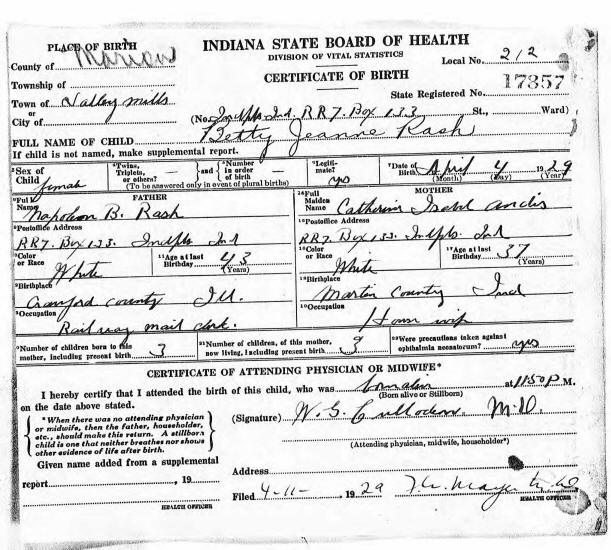 PLACE OF BIRTH
INDIANA STATE BOARD OF HEALTH
DIVISION OF VITAL STATISTICS
County of Marion
Local No. 212
CERTIFICATE OF BIRTH
Township of
State Registered No. 17357
Town of Valley Mills
or
City of
(No. Indpls. Ind. RR7. Box 133 St., Ward)
FULL NAME OF CHILD Betty Jeanne Rash
If child is not named, make supplemental report.
Sex of Child female
Twins, Triplets, or others? and Number in order of birth
(To be answered only in event of plural births)
Legitimate? yes
Date of Birth April 4 1929
(Month) (Day) (Year)
FATHER
Full Name Napoleon B. Rash
Postoffice Address
RR7. Box 133. Indpls Ind
Color or Race White
Age at last Birthday 43
(Years)
Birthplace
Crawford County Ill.
Occupation
Railway mail clerk.
MOTHER
Full Maiden Name Catherine Isabel
Postoffice Address
RR7. Box 133. Indpls. Ind
Color or Race White
Age at last Birthday 37
(Years)
Birthplace
Martin County Ind
Occupation
House wife
Number of children born to this mother, including present birth 3
Number of children, of this mother, now living, including present birth 3
Were precautions taken against ophthalmia neonatorum? yes
CERTIFICATE OF ATTENDING PHYSICIAN OR MIDWIFE*
I hereby certify that I attended the birth of this child, who was born alive at 11:50 P M.
(Born alive or Stillborn)
on the date above stated.
*When there was no attending physician
or midwife, then the father, householder,
etc., should make this return. A stillborn
child is one that neither breathes nor shows
other evidence of life after birth.
(Signature) W. G. M.D.
(Attending physician, midwife, householder*)
Given name added from a supplemental
report , 19
HEALTH OFFICER
Address
Filed 4-11- , 1929
HEALTH OFFICER